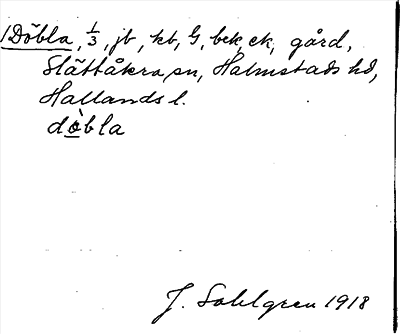 1 Döbla, 1/3, jb, kb, G, bek, ek, gård,
Slättåkra sn, Halmstads hd,
Hallands l.
dò̱bla
J. Sahlgren 1918